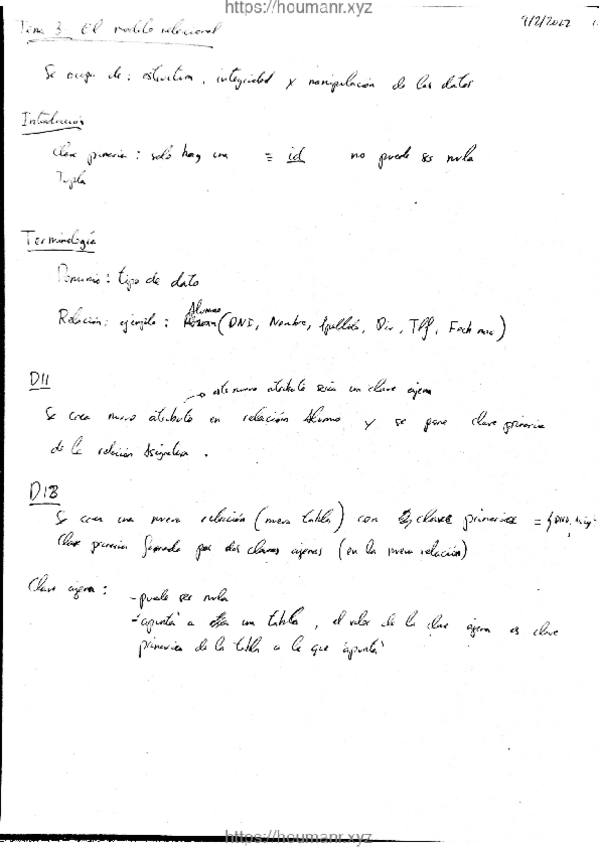 https://houmanr.xyz
Tema 3 El modelo relacional 9/2/2012 1.
Se ocupa de: estructura, integridad y manipulación de los datos
Introducción
Clave primaria: solo hay una = id no puede ser nula
Tupla
Terminología
Dominio: tipo de dato
Relación: ejemplo: Alumno (DNI, Nombre, Apellido, Dir, Tlf, Fech nac)
D11
→ este nuevo atributo sería un clave ajena
Se crea nuevo atributo en relación Alumno y se pone clave primaria
de la relación Asignatura.
D13
Se crea una nueva relación (nueva tabla) con 2 claves primarias = {DNI,
Clave primaria formada por dos claves ajenas (en la nueva relación)
Clave ajena:
- puede ser nula
- "apunta" a un tabla, el valor de la clave ajena es clave
primaria de la tabla a la que "apunta"
https://houmanr.xyz